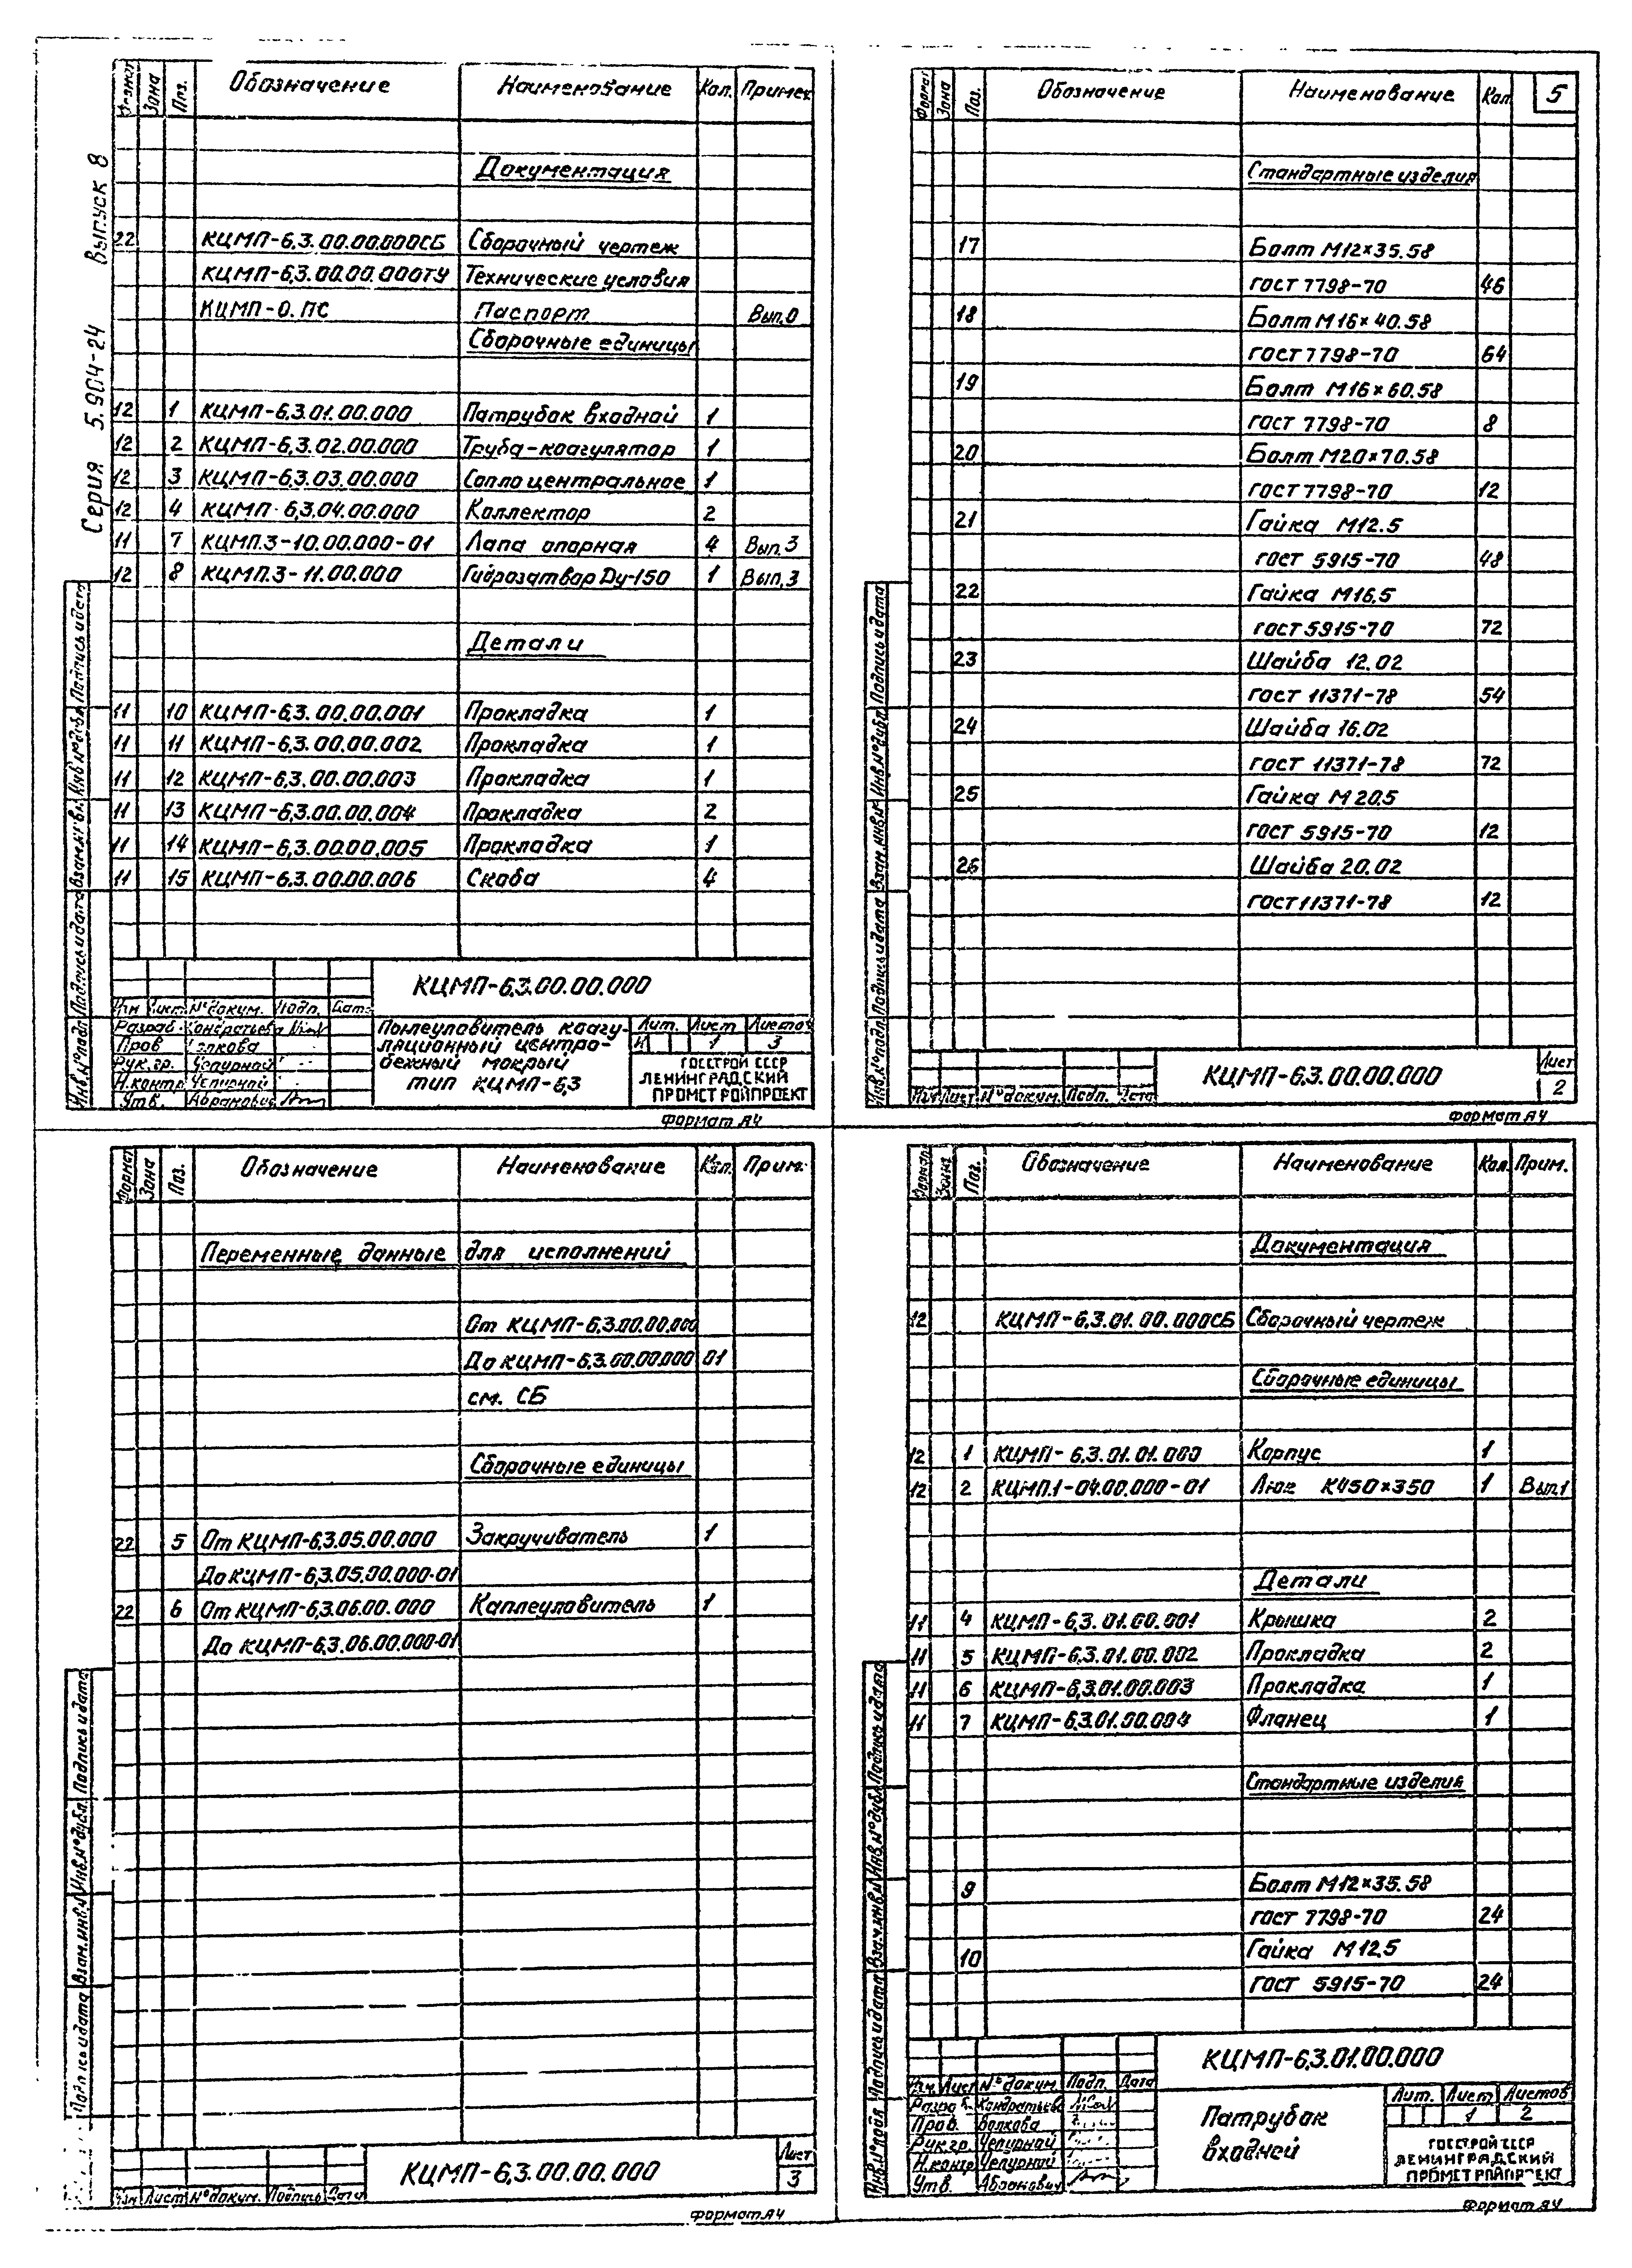 Серия 5.904-24 Выпуск 8
Формат Зона Поз. Обозначение Наименование Кол. Примеч
Документация
22 КЦМП-6,3.00.00.000СБ Сборочный чертеж
КЦМП-6,3.00.00.000ТУ Технические условия
КЦМП-0.ПС Паспорт Вып.0
Сборочные единицы
12 1 КЦМП-6,3.01.00.000 Патрубок входной 1
12 2 КЦМП-6,3.02.00.000 Труба-коагулятор 1
12 3 КЦМП-6,3.03.00.000 Сопло центральное 1
12 4 КЦМП-6,3.04.00.000 Коллектор 2
11 7 КЦМП.3-10.00.000-01 Лапа опорная 4 Вып.3
12 8 КЦМП.3-11.00.000 Гидрозатвор Ду-150 1 Вып.3
Детали
11 10 КЦМП-6,3.00.00.001 Прокладка 1
11 11 КЦМП-6,3.00.00.002 Прокладка 1
11 12 КЦМП-6,3.00.00.003 Прокладка 1
11 13 КЦМП-6,3.00.00.004 Прокладка 2
11 14 КЦМП-6,3.00.00.005 Прокладка 1
11 15 КЦМП-6,3.00.00.006 Скоба 4
Инв.№подл. Подпись и дата Взам.инв.№ Инв.№дубл. Подпись и дата
КЦМП-6,3.00.00.000
Изм Лист №докум. Подп. Дата
Разраб. Кондратьева
Пров Волкова
Рук.гр. Чепурной
Н.контр Чепурной
Утв. Абрамович
Пылеуловитель коагу-
ляционный центро-
бежный мокрый
тип КЦМП-6,3
Лит. Лист Листов
И 1 3
ГОССТРОЙ СССР
ЛЕНИНГРАДСКИЙ
ПРОМСТРОЙПРОЕКТ
Формат А4
Формат Зона Поз. Обозначение Наименование Кол. 5
Стандартные изделия
17 Болт М12×35.58
гост 7798-70 46
18 Болт М16×40.58
гост 7798-70 64
19 Болт М16×60.58
гост 7798-70 8
20 Болт М20×70.58
гост 7798-70 12
21 Гайка М12.5
гост 5915-70 48
22 Гайка М16.5
гост 5915-70 72
23 Шайба 12.02
гост 11371-78 54
24 Шайба 16.02
гост 11371-78 72
25 Гайка М20.5
гост 5915-70 12
26 Шайба 20.02
гост 11371-78 12
Инв.№подл. Подпись и дата Взам.инв.№ Инв.№дубл. Подпись и дата
КЦМП-6,3.00.00.000
Лист
2
Изм Лист №докум. Подп. Дата
Формат А4
Формат Зона Поз. Обозначение Наименование Кол. Прим.
Переменные данные для исполнений
От КЦМП-6,3.00.00.000
До КЦМП-6,3.00.00.000 01
см. СБ
Сборочные единицы
22 5 От КЦМП-6,3.05.00.000 Закручиватель 1
До КЦМП-6,3.05.00.000-01
22 6 От КЦМП-6,3.06.00.000 Каплеуловитель 1
До КЦМП-6,3.06.00.000-01
Подпись и дата Взам.инв.№ Инв.№дубл. Подпись и дата
КЦМП-6,3.00.00.000
Лист
3
Изм Лист №докум. Подпись Дата
Формат А4
Формат Зона Поз. Обозначение Наименование Кол. Прим.
Документация
12 КЦМП-6,3.01.00.000СБ Сборочный чертеж
Сборочные единицы
12 1 КЦМП-6,3.01.01.000 Корпус 1
12 2 КЦМП.1-04.00.000-01 Люк К450×350 1 Вып.1
Детали
11 4 КЦМП-6,3.01.00.001 Крышка 2
11 5 КЦМП-6,3.01.00.002 Прокладка 2
11 6 КЦМП-6,3.01.00.003 Прокладка 1
11 7 КЦМП-6,3.01.00.004 Фланец 1
Стандартные изделия
9 Болт М12×35.58
гост 7798-70 24
10 Гайка М12.5
гост 5915-70 24
Инв.№подл Подпись и дата Взам.инв.№ Инв.№дубл. Подпись и дата
КЦМП-6,3.01.00.000
Изм. Лист №докум. Подп. Дата
Разраб. Кондратьева
Пров. Волкова
Рук.гр. Чепурной
Н.контр Чепурной
Утв. Абрамович
Патрубок
входней
Лит. Лист Листов
1 2
ГОССТРОЙ СССР
ЛЕНИНГРАДСКИЙ
ПРОМСТРОЙПРОЕКТ
Формат А4